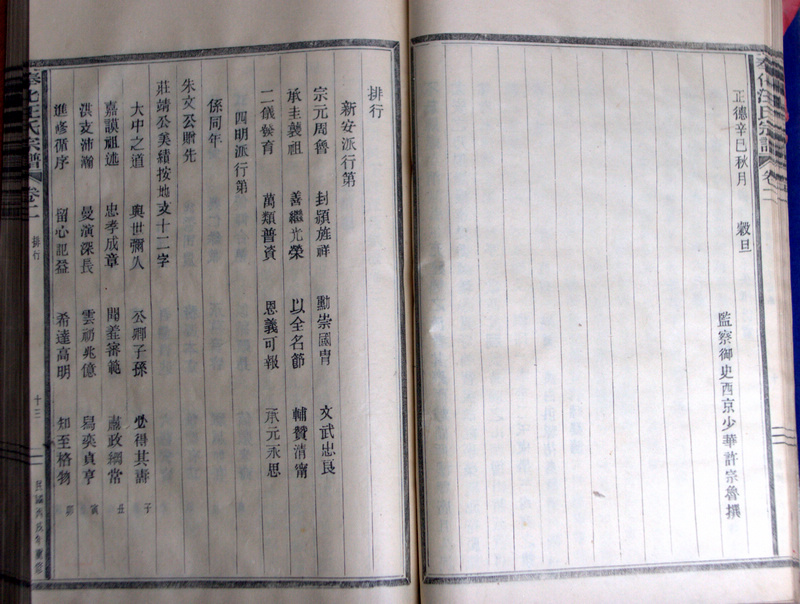 正德辛巳秋月　穀旦
監察御史西京少華許宗魯撰
排行
新安派行第
宗元周魯　封潁旌祥　勳崇國冑　文武忠良
承圭襲祖　善繼光榮　以全名節　輔贊清甯
二儀發育　萬類普資　恩義可報　承元永思
四明派行第
係同年
朱文公贈先
莊靖公美績按地支十二字
大中之道　與世彌久　公卿子孫　必得其壽　子
嘉謨祖述　忠孝成章　閑差審範　肅政綱常　丑
洪支沛瀚　曼演深長　雲礽兆億　奕貞亨　寅
進修循序　留心記益　希達高明　知至格物　卯
汪氏宗譜　卷二　排行　十三